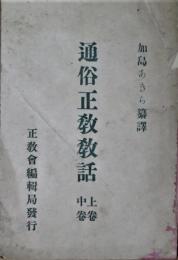 加島あきら纂譯
通俗正敎敎話 上卷 中卷
正敎會編輯局發行